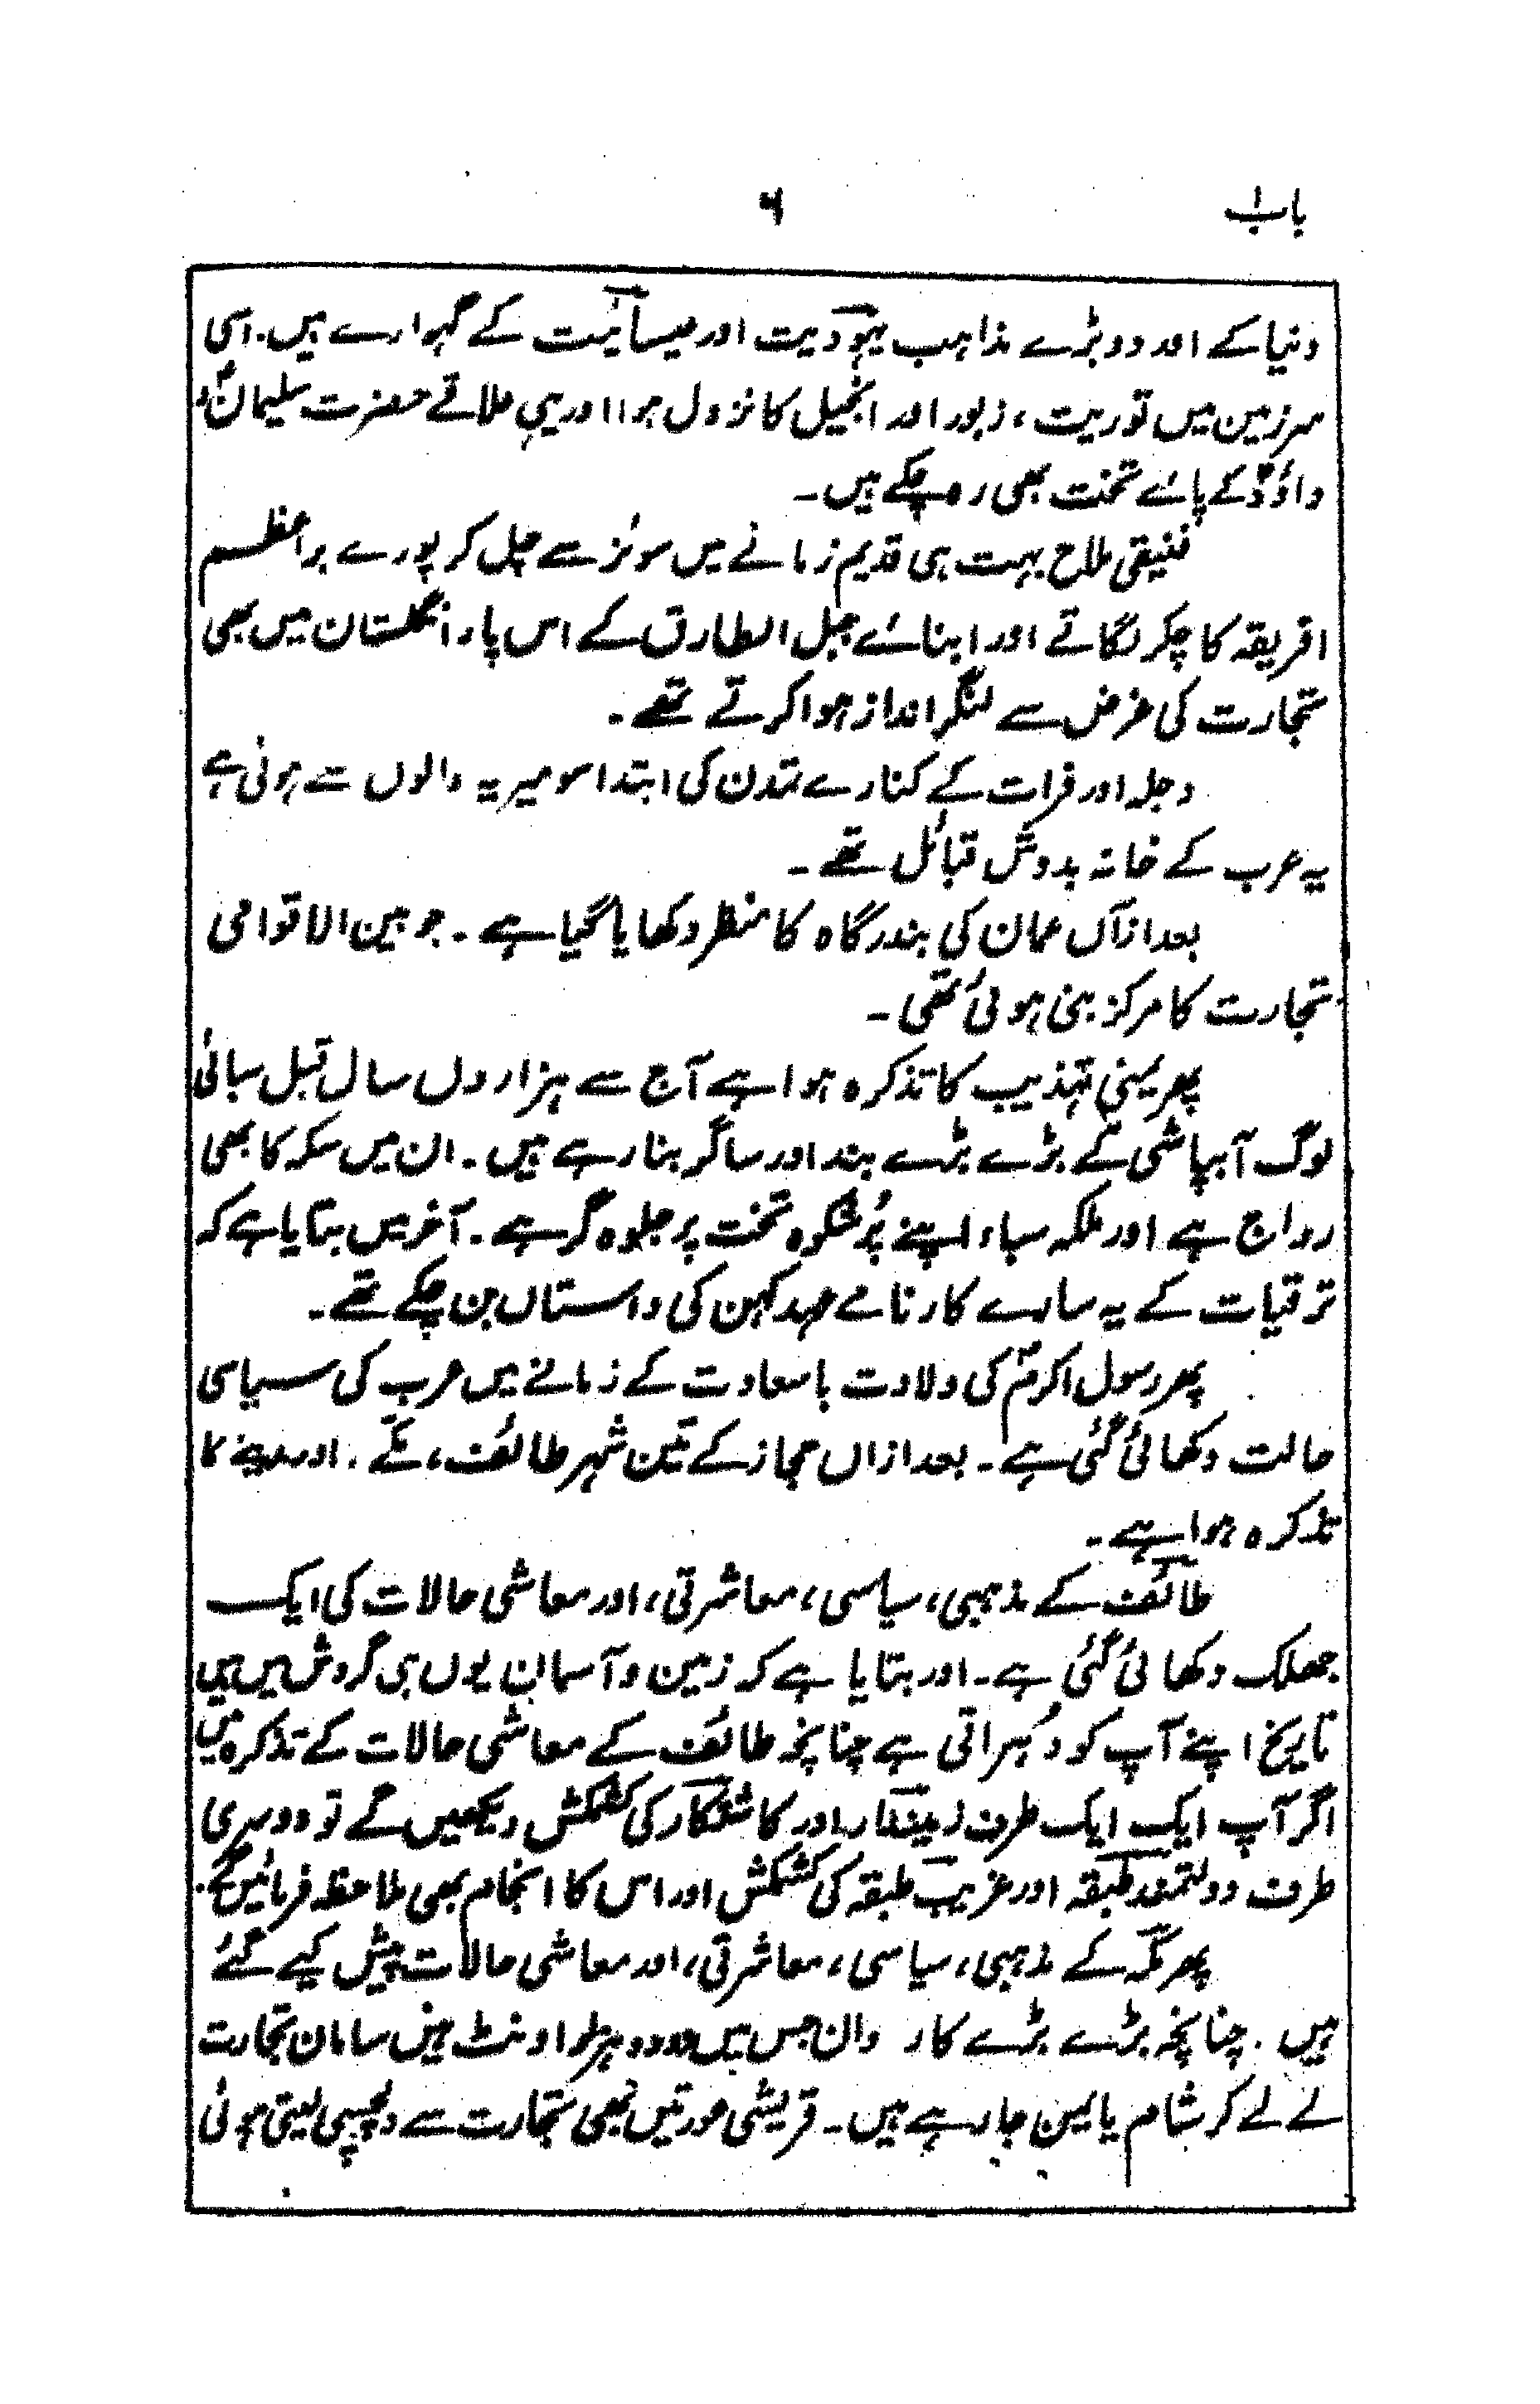 باب ۱
۶
دنیا کے اور دو بڑے مذاہب یہودیت اور عیسائیت کے گہوارے ہیں۔ اسی
سرزمین میں توریت، زبور اور انجیل کا نزول ہوا اور یہی علاقے حضرت سلیمانؑ و
داؤدؑ کے پائے تخت بھی رہ چکے ہیں۔
فنیقی ملاح بہت ہی قدیم زمانے میں سوئز سے چل کر پورے براعظم
افریقہ کا چکر لگاتے اور ابنائے جبل الطارق کے اس پار انگلستان میں بھی
تجارت کی غرض سے لنگر انداز ہوا کرتے تھے۔
دجلہ اور فرات کے کنارے تمدن کی ابتدا سومیریہ والوں سے ہوئی ہے
یہ عرب کے خانہ بدوش قبائل تھے۔
بعد ازآں عمان کی بندرگاہ کا منظر دکھایا گیا ہے۔ جو بین الاقوامی
تجارت کا مرکز بنی ہوئی تھی۔
پھر یمنی تہذیب کا تذکرہ ہوا ہے آج سے ہزاروں سال قبل سبائی
لوگ آبپاشی کے بڑے بڑے بند اور ساگر بنا رہے ہیں۔ ان میں سکہ کا بھی
رواج ہے اور ملکہ سباء اپنے پُرشکوہ تخت پر جلوہ گر ہے۔ آخر میں بتایا ہے کہ
ترقیات کے یہ سارے کارنامے عہد کہن کی داستاں بن چکے تھے۔
پھر رسول اکرمؐ کی ولادت باسعادت کے زمانے میں عرب کی سیاسی
حالت دکھائی گئی ہے۔ بعد ازاں حجاز کے تین شہر طائف، مکے۔ اور مدینے کا
تذکرہ ہوا ہے۔
طائف کے مذہبی، سیاسی، معاشرتی، اور معاشی حالات کی ایک
جھلک دکھائی گئی ہے۔ اور بتایا ہے کہ زمین و آسمان یوں ہی گردش میں ہیں
تاریخ اپنے آپ کو دُہراتی ہے چنانچہ طائف کے معاشی حالات کے تذکرہ میں
اگر آپ ایک ایک طرف زمیندار اور کاشتکار کی کشمکش دیکھیں گے تو دوسری
طرف دولتمند طبقہ اور غریب طبقہ کی کشمکش اور اس کا انجام بھی ملاحظہ فرمائیں گے۔
پھر مکّہ کے مذہبی، سیاسی، معاشرتی، اور معاشی حالات پیش کیے گئے
ہیں۔ چنانچہ بڑے بڑے کار وان جس میں دو دو ہزار اونٹ ہیں سامان تجارت
لے لے کر شام یا یمن جا رہے ہیں۔ قریشی عورتیں بھی تجارت سے دلچسپی لیتی ہوئی